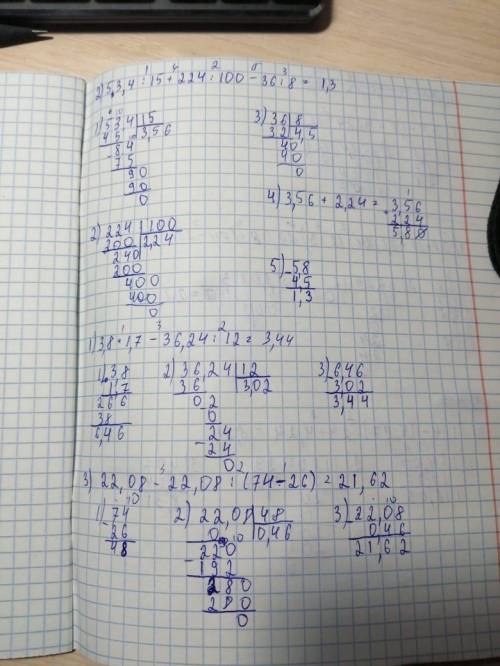 2) 53,4 : 15 + 224 : 100 - 36 : 8 = 1,3
1) 534 | 15
45 | 3,56
84
75
90
90
0
3) 36 | 8
32 | 4,5
40
40
0
4) 3,56 + 2,24 = 3,56
2,24
5,80
2) 224 | 100
200 | 2,24
240
200
400
400
0
5) - 5,8
4,5
1,3
1) 3,8 · 1,7 - 36,24 : 12 = 3,44
1) 3,8
1,7
266
38
6,46
2) 36,24 | 12
36 | 3,02
02
0
24
24
0
3) 6,46
302
3,44
3) 22,08 - 22,08 : (74 - 26) = 21,62
1) 74
26
48
2) 22,08 | 48
0 | 0,46
220
192
280
0
3) 22,08
0,46
21,62